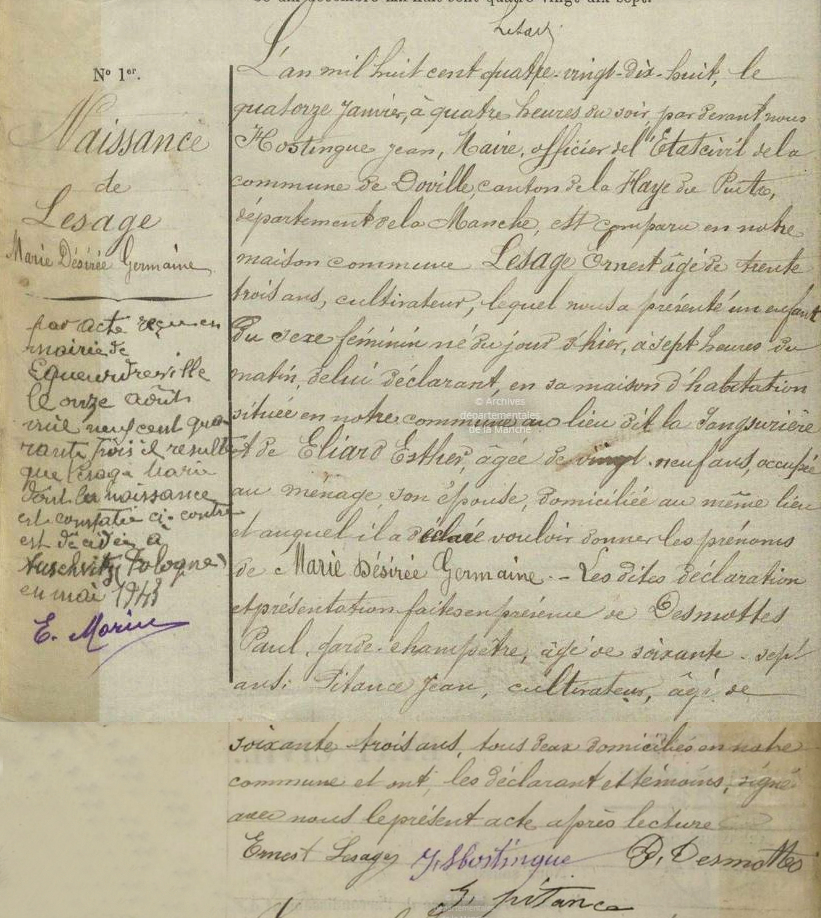 ce dix décembre mil huit cent quatre vingt dix sept.
N° 1er.
Naissance
de
Lesage
Marie Désirée Germaine
par acte reçu en
mairie de
Equeurdreville
le onze août
mil neuf cent qua-
rante trois il resulte
que Lesage Marie
dont la naissance
est constatée ci-contre
est décédée à
Auschvitz (Pologne)
en mai 1943
E. Morin
L'an mil huit cent quatre-vingt-dix-huit, le
quatorze Janvier, à quatre heures du soir, par devant nous
Hostingue Jean, Maire, officier de l'Etat civil de la
commune de Doville, canton de la Haye du Puits,
département de la Manche, est comparu en notre
maison commune Lesage Ernest âgé de trente
trois ans, cultivateur, lequel nous a présenté un enfant
du sexe féminin né du jour d'hier, à sept heures du
matin, de lui déclarant, en sa maison d'habitation
située en notre commune au lieu dit la Sangsurière
et de Eliard Esther, agée de vingt-neuf ans, occupée
au ménage, son épouse, domiciliée au même lieu
et auquel il a déclaré vouloir donner les prénoms
de Marie Désirée Germaine.- Les dites déclaration
et présentation faites en présence de Desmottes
Paul, garde-champêtre, âgé de soixante-sept
ans; Pitance Jean, cultivateur, âgé de
soixante-trois ans, tous deux domiciliés en notre
commune et ont, les déclarant et témoins, signé
avec nous le présent acte après lecture
Ernest Lesage J. Hostingue P. Desmottes
J. pitance
© Archives
départementales
de la Manche